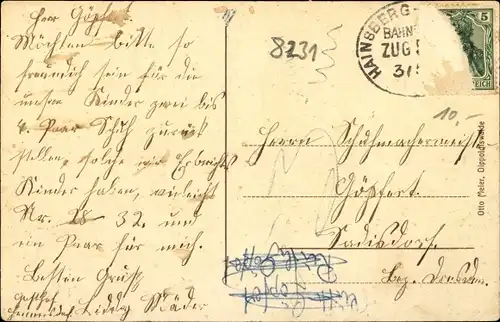 Herr Göpfert
Möchten bitte so
freundlich sein für die
unsere Kinder zwei bis
4. Paar Schuh zurück
stellen, solche wie
Kinder haben, vieleicht
Nr. 28 32. und
ein Paar für mich.
Besten Gruß
Gasthof
Liddy Mäder
8231
HAINSBERG-
BAHN
ZUG
31
5
REICH
10,-
Herrn Schuhmachermeister
Göpfert
Sadisdorf.
Bez. Dresden
Otto Meier, Dippoldiswalde